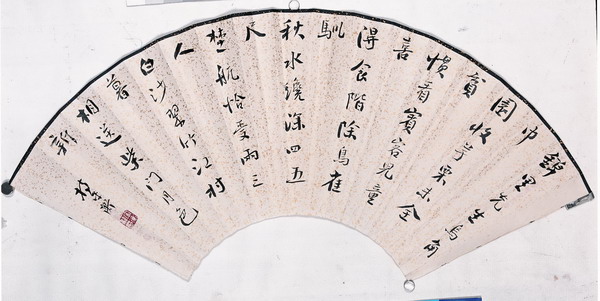 錦里先生烏角
巾
園收芋栗未全
貧
慣看賓客兒童
喜
得食階除鳥雀
馴
秋水纔深四五
尺
埜航恰受兩三
人
白沙翠竹江村
暮
相送柴門月色
新